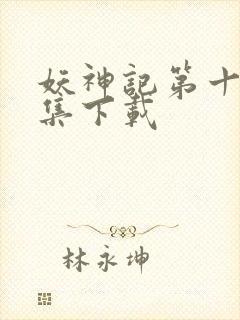 妖神記第十
集下載
林永坤